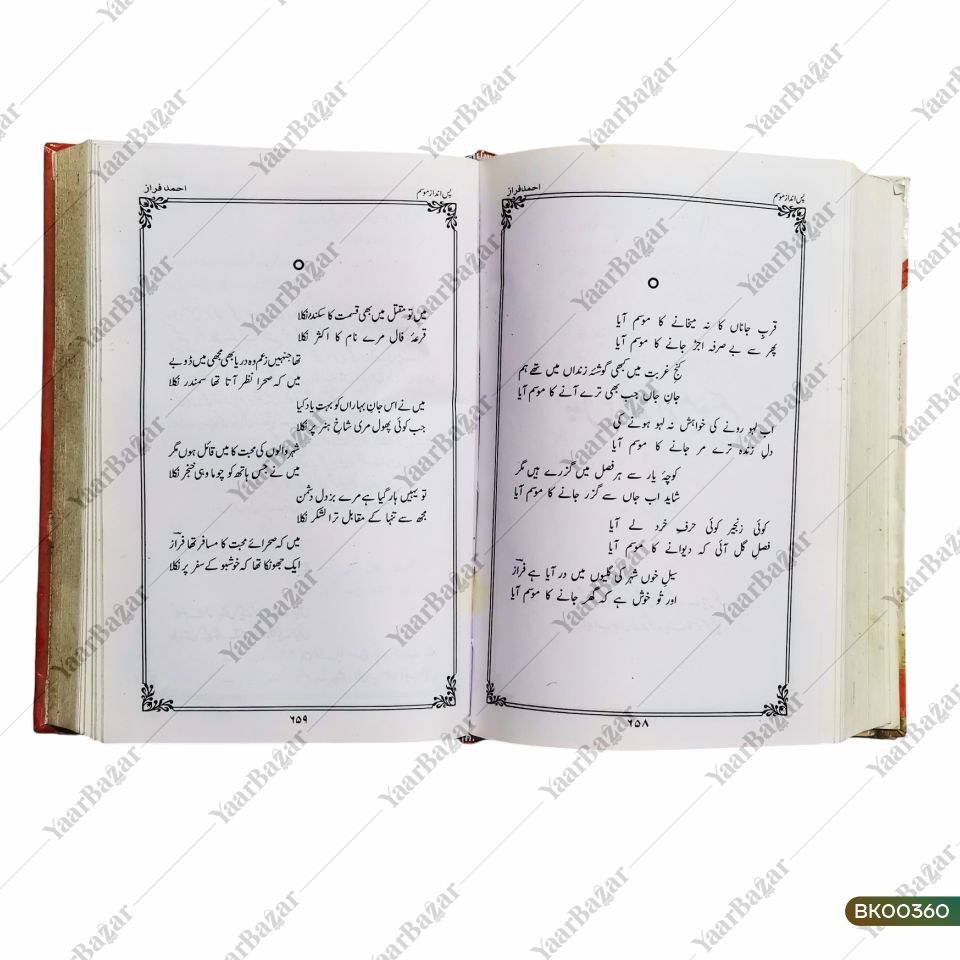 پس انداز موسم
احمد فراز
قربِ جاناں کا نہ میخانے کا موسم آیا
پھر سے بے صرفہ اجڑ جانے کا موسم آیا
کنجِ غربت میں کبھی گوشۂ زنداں میں تھے ہم
جانِ جاں جب بھی ترے آنے کا موسم آیا
اب لہو رونے کی خواہش نہ لہو ہونے کی
دلِ زندہ ترے مر جانے کا موسم آیا
کوچۂ یار سے ہر فصل میں گزرے ہیں مگر
شاید اب جاں سے گزر جانے کا موسم آیا
کوئی زنجیر کوئی حرفِ خرد لے آیا
فصلِ گل آئی کہ دیوانے کا موسم آیا
سیلِ خوں شہر کی گلیوں میں در آیا ہے فرازؔ
اور تُو خوش ہے کہ گھر جانے کا موسم آیا
۶۵۸
پس انداز موسم
احمد فراز
میں تو مقتل میں بھی قسمت کا سکندر نکلا
قرعۂ فال مرے نام کا اکثر نکلا
تھا جنہیں زعم وہ دریا بھی مجھی میں ڈوبے
میں کہ صحرا نظر آتا تھا سمندر نکلا
میں نے اس جانِ بہاراں کو بہت یاد کیا
جب کوئی پھول مری شاخِ ہنر پر نکلا
شہر والوں کی محبت کا میں قائل ہوں مگر
میں نے جس ہاتھ کو چوما وہی خنجر نکلا
تو یہیں ہار گیا ہے مرے بزدل دشمن
مجھ سے تنہا کے مقابل ترا لشکر نکلا
میں کہ صحرائے محبت کا مسافر تھا فرازؔ
ایک جھونکا تھا کہ خوشبو کے سفر پر نکلا
۶۵۹
YaarBazar
BK00360